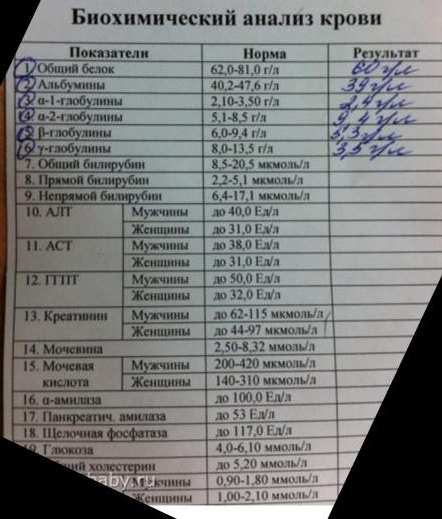 Биохимический анализ крови
Показатели Норма Результат
1. Общий белок 62,0-81,0 г/л 60 г/л
2. Альбумины 40,2-47,6 г/л 39 г/л
3. α-1-глобулины 2,10-3,50 г/л 2,4 г/л
4. α-2-глобулины 5,1-8,5 г/л 9,4 г/л
5. β-глобулины 6,0-9,4 г/л 5,3 г/л
6. γ-глобулины 8,0-13,5 г/л 3,5 г/л
7. Общий билирубин 8,5-20,5 мкмоль/л
8. Прямой билирубин 2,2-5,1 мкмоль/л
9. Непрямой билирубин 6,4-17,1 мкмоль/л
10. АЛТ Мужчины до 40,0 Ед/л
Женщины до 31,0 Ед/л
11. АСТ Мужчины до 38,0 Ед/л
Женщины до 31,0 Ед/л
12. ГГПТ Мужчины до 50,0 Ед/л
Женщины до 32,0 Ед/л
13. Креатинин Мужчины до 62-115 мкмоль/л
Женщины до 44-97 мкмоль/л
14. Мочевина 2,50-8,32 ммоль/л
15. Мочевая Мужчины 200-420 мкмоль/л
кислота Женщины 140-310 мкмоль/л
16. α-амилаза до 100,0 Ед/л
17. Панкреатич. амилаза до 53 Ед/л
18. Щелочная фосфатаза до 117,0 Ед/л
19. Глюкоза 4,0-6,10 ммоль/л
холестерин до 5,20 ммоль/л
Мужчины 0,90-1,80 ммоль/л
Женщины 1,00-2,10 ммоль/л
baby.ru